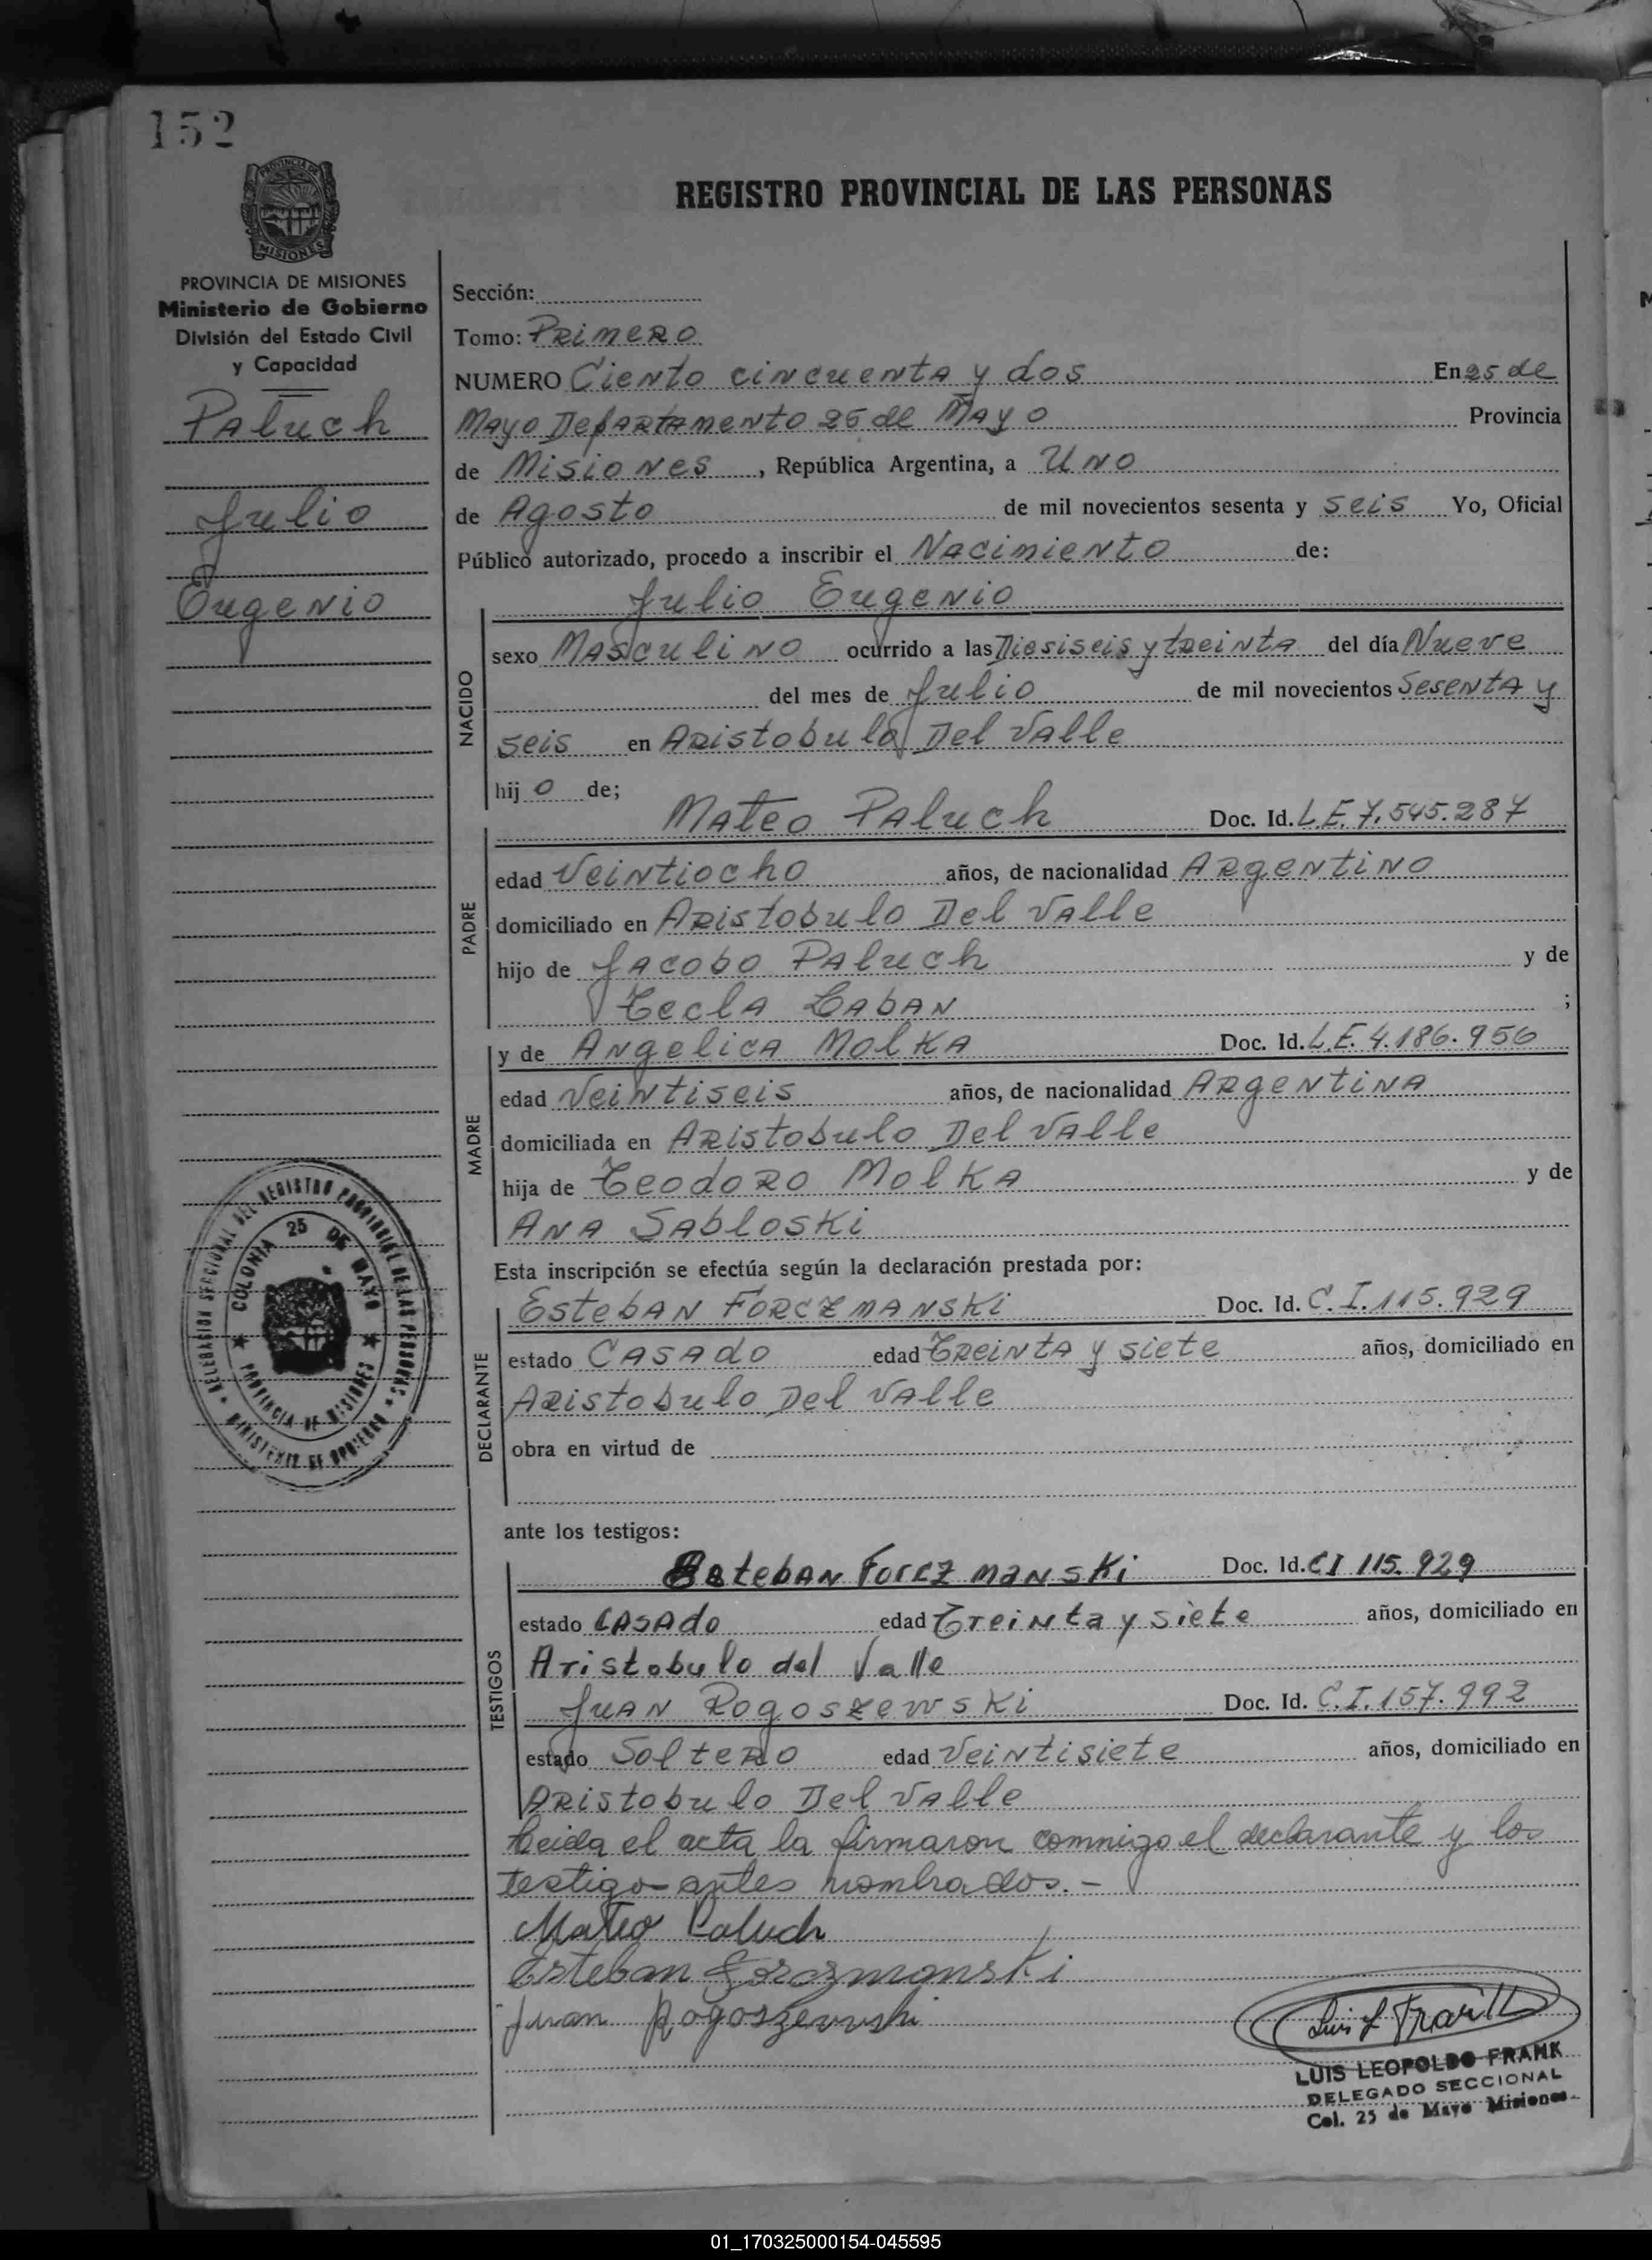 152
PROVINCIA DE
MISIONES
REGISTRO PROVINCIAL DE LAS PERSONAS
PROVINCIA DE MISIONES
Ministerio de Gobierno
División del Estado Civil
y Capacidad
Paluch
Julio
Eugenio
Sección:
Tomo: Primero
NUMERO Ciento cincuenta y dos En 25 de
Mayo Departamento 25 de Mayo Provincia
de Misiones, República Argentina, a Uno
de Agosto de mil novecientos sesenta y seis Yo, Oficial
Público autorizado, procedo a inscribir el Nacimiento de:
Julio Eugenio
NACIDO
sexo Masculino ocurrido a las Diesiseis y treinta del día Nueve
del mes de Julio de mil novecientos Sesenta y
seis en Aristobulo Del Valle
hij o de;
Mateo Paluch Doc. Id. L.E. 7.545.287
PADRE
edad Veintiocho años, de nacionalidad Argentino
domiciliado en Aristobulo Del Valle
hijo de Jacobo Paluch y de
Tecla Laban ;
MADRE
y de Angelica Molka Doc. Id. L.E. 4.186.956
edad Veintiseis años, de nacionalidad Argentina
domiciliada en Aristobulo Del Valle
hija de Teodoro Molka y de
Ana Sabloski
Esta inscripción se efectúa según la declaración prestada por:
DECLARANTE
Esteban Forczmanski Doc. Id. C.I. 115.929
estado Casado edad Treinta y siete años, domiciliado en
Aristobulo Del Valle
obra en virtud de
ante los testigos:
TESTIGOS
Esteban Forczmanski Doc. Id. CI 115.929
estado Casado edad Treinta y siete años, domiciliado en
Aristobulo del Valle
Juan Rogoszewski Doc. Id. C.I. 157.992
estado Soltero edad Veintisiete años, domiciliado en
Aristobulo Del Valle
Leida el acta la firmaron commigo el declarante y los
testigo antes nombrados.-
Mateo Paluch
Esteban Forczmanski
Juan Rogoszewski
DELEGACION SECCIONAL DEL REGISTRO PROVINCIAL DE LAS PERSONAS
MINISTERIO DE GOBIERNO
COLONIA 25 DE MAYO
PROVINCIA DE MISIONES
Luis L Frank
LUIS LEOPOLDO FRANK
DELEGADO SECCIONAL
Col. 25 de Mayo Misiones
01_170325000154-045595